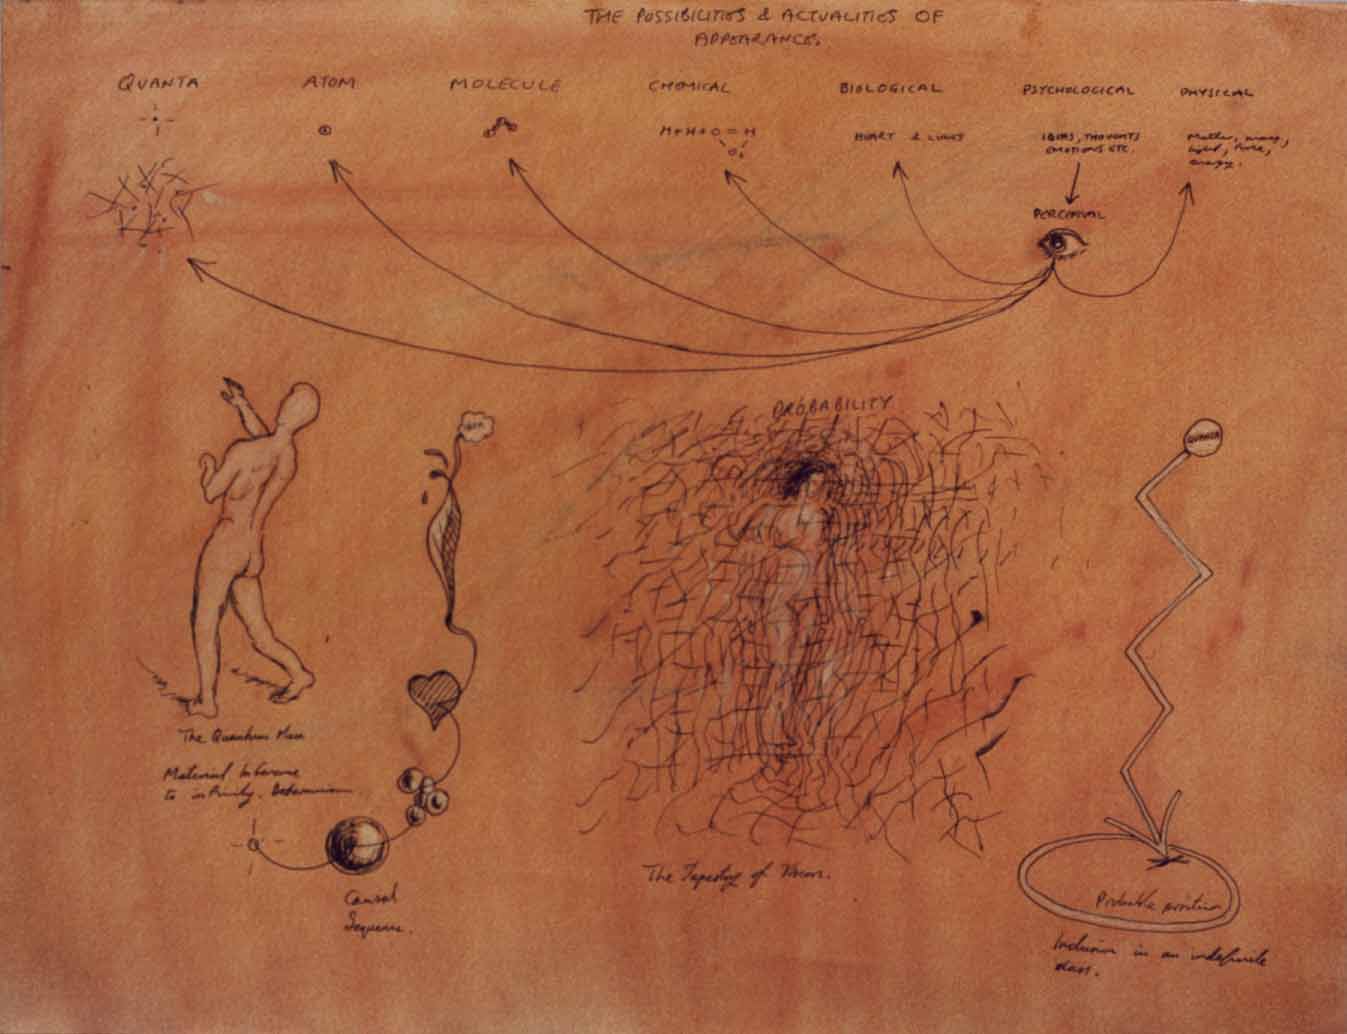 THE POSSIBILITIES & ACTUALITIES OF
APPEARANCE.
QUANTA
ATOM
MOLECULE
CHEMICAL
BIOLOGICAL
PSYCHOLOGICAL
PHYSICAL
H+H+O=H
HEART & LUNGS
IDEAS, THOUGHTS
EMOTIONS ETC.
Matter, mass,
light, time,
energy.
PERCEIVAL
IDEA
PROBABILITY
QUANTA
The Quantum Man
Material
to infinity.
Causal
Sequence.
The Tapestry of Vision.
Probable position
Inclusion in an indefinite
class.